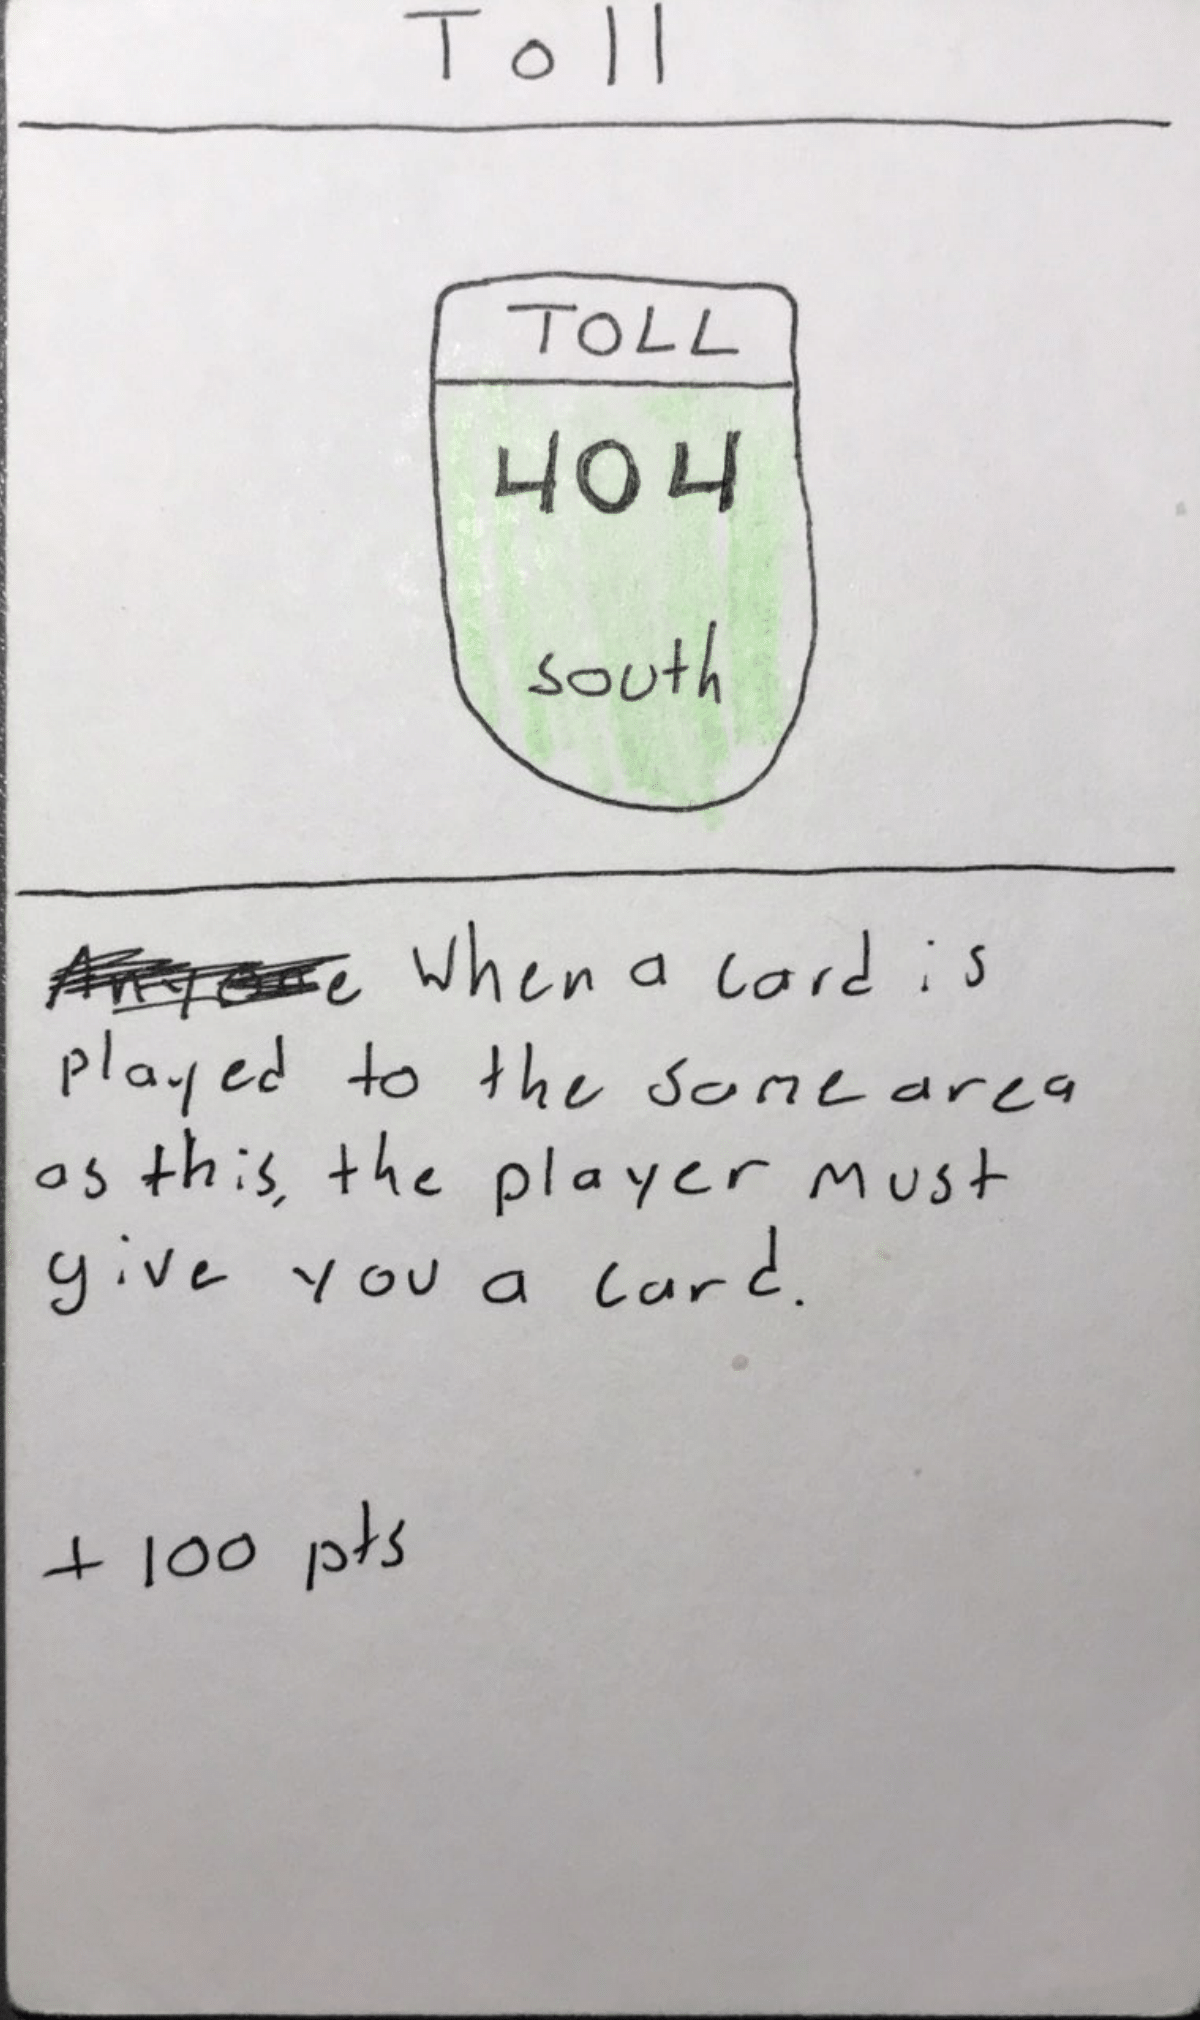 Toll
TOLL
404
south
Anyone When a card is
played to the same area
as this, the player must
give you a card.
+ 100 pts